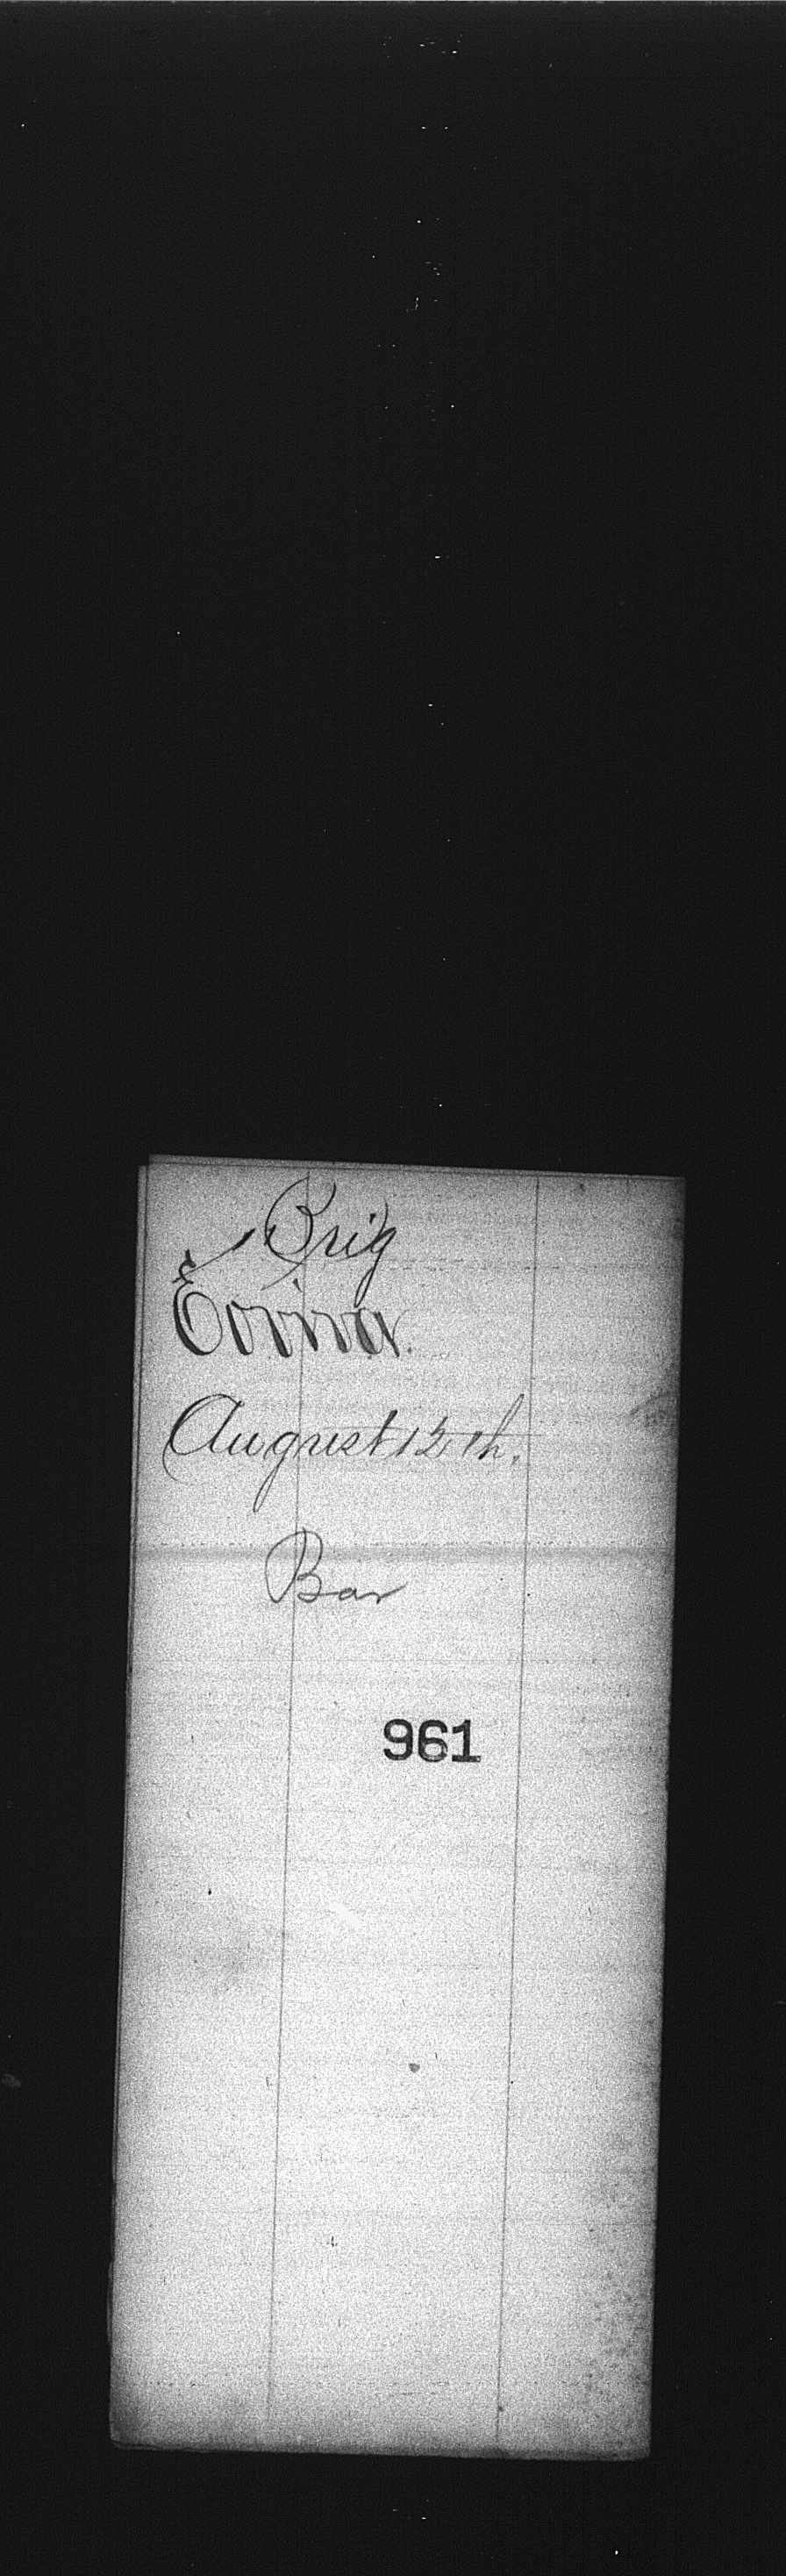 Brig
August 12th.
Bar
961